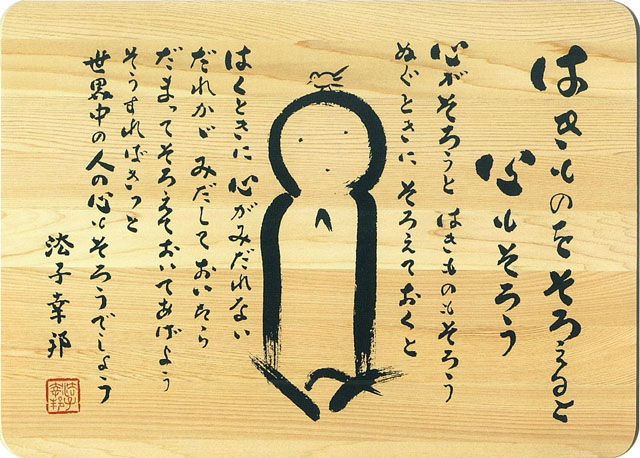 はきものをそろえると
心もそろう
心がそろうと はきものもそろう
ぬぐときに そろえておくと
はくときに 心がみだれない
だれかが みだしておいたら
だまってそろえておいてあげよう
そうすればきっと
世界中の人の心もそろうでしょう